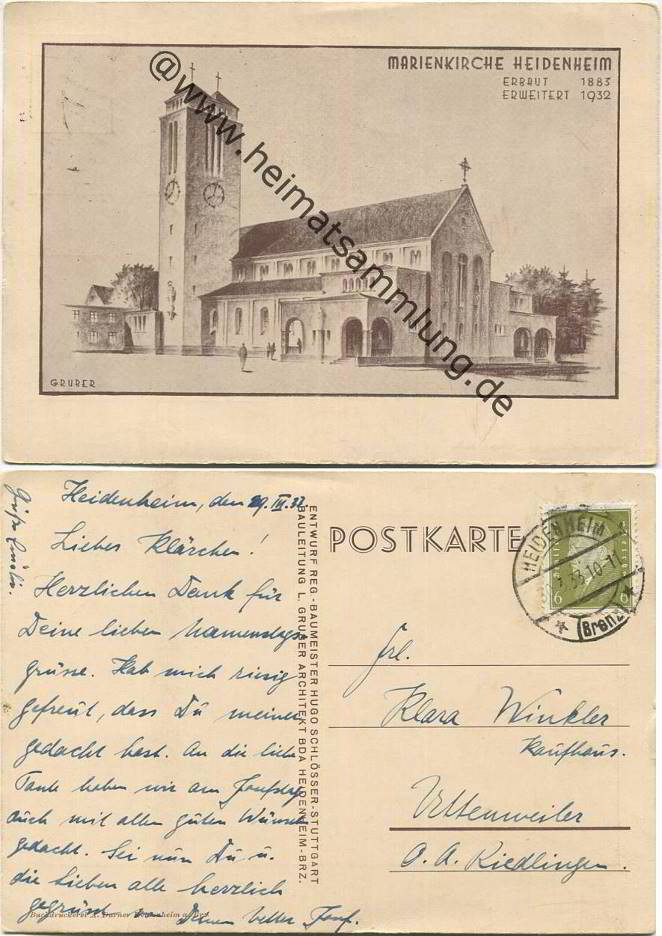 MARIENKIRCHE HEIDENHEIM
ERBAUT 1883
ERWEITERT 1932
@www.heimatsammlung.de
GRUBER
Heidenheim, den 29. III. 33
Liebes Klärchen!
Herzlichen Dank für
Deine lieben Namenstags-
grüsse. Hab mich riesig
gefreut, dass Du meiner
gedacht hast. An die liebe
Tante haben wir am
auch mit allen guten Wünschen
gedacht. Sei nun Du u.
die Lieben alle herzlich
gegrüsst von Deinem Vetter
ENTWURF REG.-BAUMEISTER HUGO SCHLÖSSER-STUTTGART
BAULEITUNG L. GRUBER ARCHITEKT BDA HEIDENHEIM-BRZ.
Buchdruckerei A. Darner Heidenheim a. Brz.
POSTKARTE
HEIDENHEIM
3.33.10-11
(Brenz)
6
Frl.
Klara Winkler
Kaufhaus.
Uttenweiler
O. A. Riedlingen.